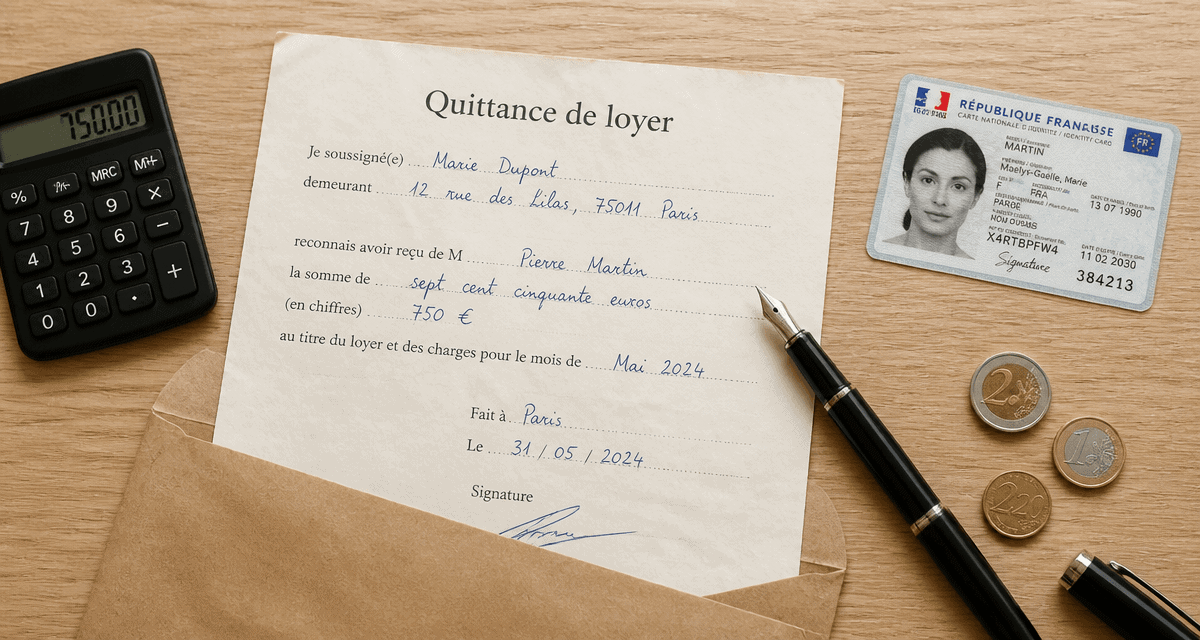 750.00
%
MRC
M+
7
8
9
×
4
5
6
−
1
2
3
+
0
0
.
Quittance de loyer
Je soussigné(e) Marie Dupont
demeurant 12 rue des Lilas, 75011 Paris
reconnais avoir reçu de M Pierre Martin
la somme de sept cent cinquante euros
(en chiffres) 750 €
au titre du loyer et des charges pour le mois de Mai 2024
Fait à Paris
Le 31 / 05 / 2024
Signature
RÉPUBLIQUE FRANÇAISE
CARTE NATIONALE D'IDENTITÉ / IDENTITY CARD
FR
MARTIN
Maelys-Gaëlle, Marie
F FRA 13 07 1990
X4RTBPFW4 11 02 2030
384213
2
1